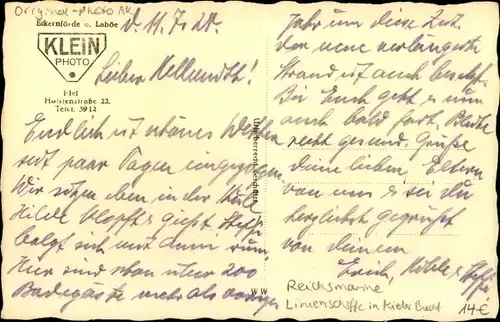 Original-Photo AK
Eckernförde o. Laböe
d. 11.7.28.
KLEIN
PHOTO
Kiel
Holstenstraße 22.
Telef. 3912
Lieber Hellmuth!
Endlich ist schönes Wetter
seit paar Tagen eingezogen.
Wir sitzen eben in der
Hilde klopft & gießt. Steffi
balgt sich mit dem rum.
Hier sind schon über 200
Badegäste mehr als voriges
Jahr um diese Zeit.
Der neue verlängerte
Strand ist auch besetzt.
Bei Euch geht es nun
auch bald fort. Bleibe
recht gesund. Grüße
deine lieben Eltern
von uns & sei du
herzlichst gegrüßt
von deinem
Erich, Hilde & Steffi
Reichsmarine
Linienschiffe in Kieler Bucht
14€